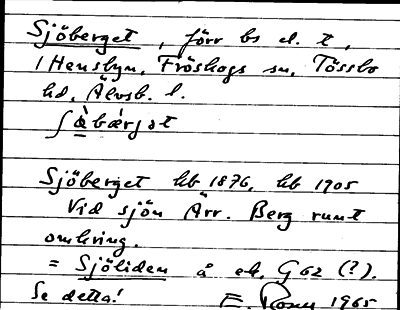 Sjöberget, förr bs el. t,
i Hensbyn, Fröskogs sn, Tössbo
hd, Älvsb. l.
ʃø̀bæŕjət
Sjöberget hb 1876, hb 1905
Vid sjön Ärr. Berg runt
omkring.
= Sjöliden å ek. G 62 (?).
Se detta! E. Rosen 1965